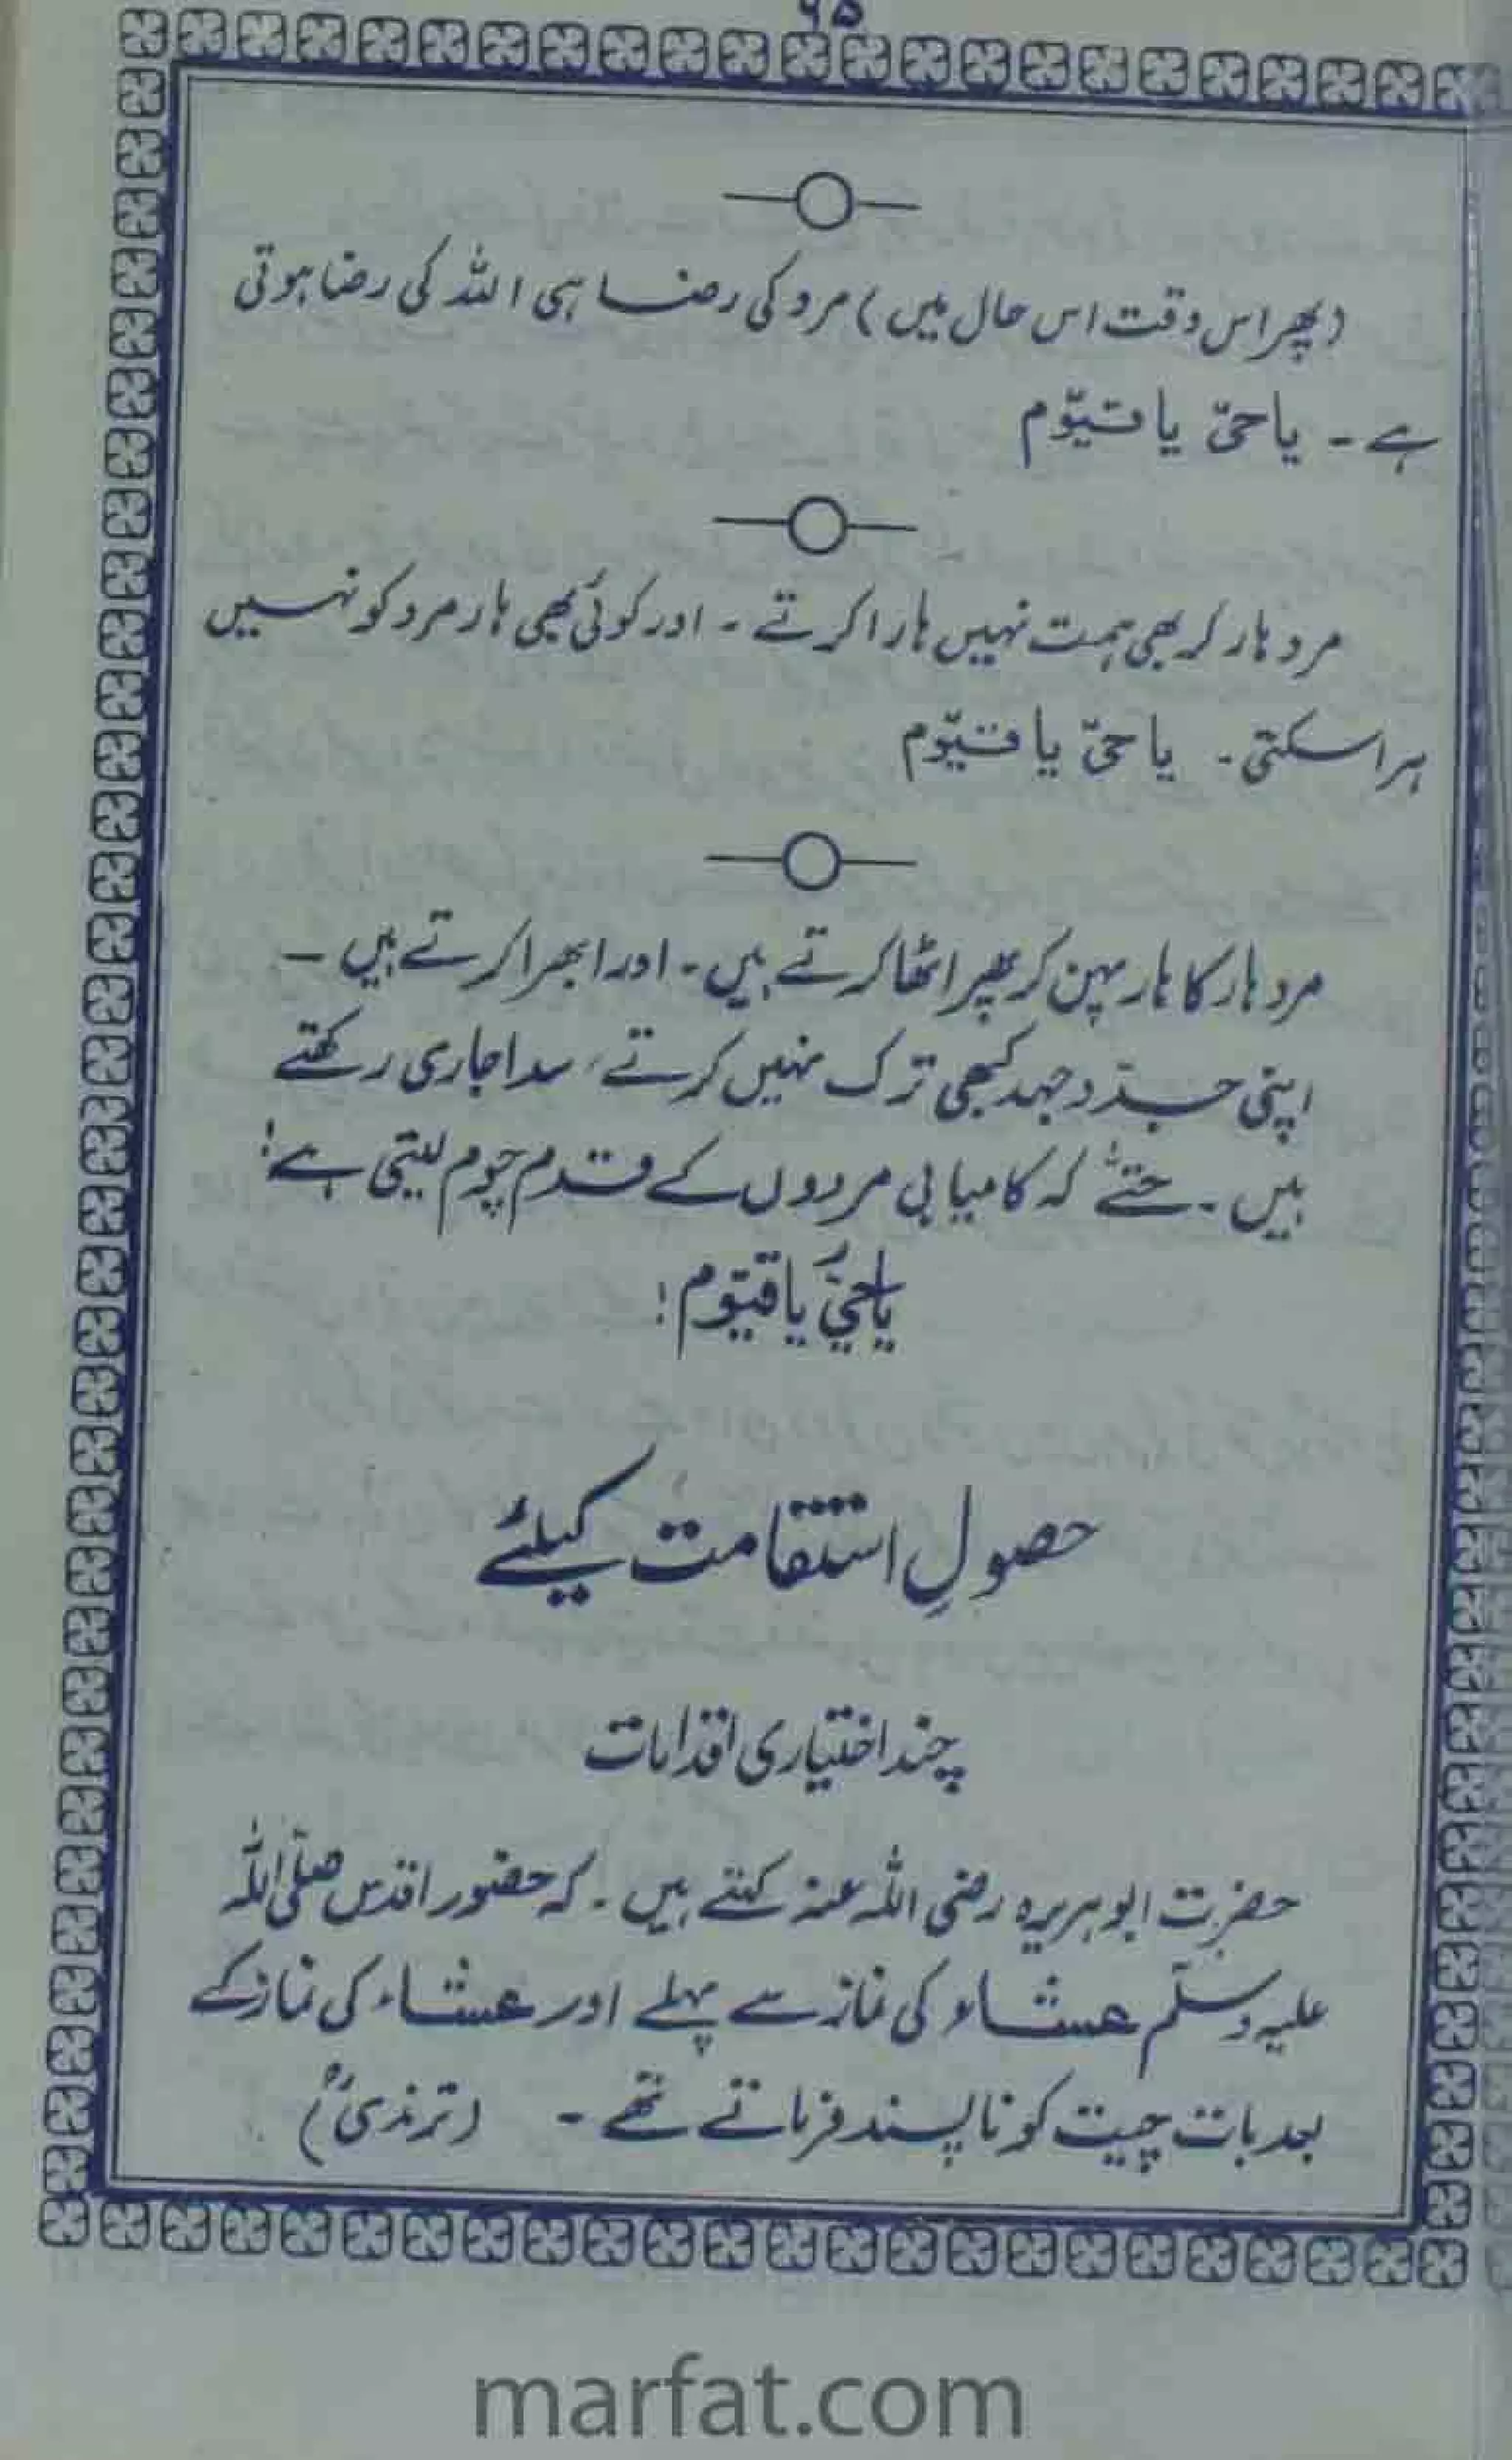 ۶۵
(پھر اس وقت اس حال میں) مرد کی رضا ہی اللہ کی رضا ہوتی
ہے ۔ یا حیّ یا قیّوم
مرد ہار کر بھی ہمت نہیں ہارا کرتے ۔ اور کوئی بھی ہار مرد کو نہیں
ہرا سکتی ۔ یا حیّ یا قیّوم
مرد ہار کا ہار پہن کر پھر اٹھا کرتے ہیں ۔ اور ابھرا کرتے ہیں ۔
اپنی جدّ و جہد کبھی ترک نہیں کرتے، سدا جاری رکھتے
ہیں ۔ حتےٰ کہ کامیابی مردوں کے قدم چوم لیتی ہے!
یا حیّ یا قیّوم!
حصولِ استقامت کیلئے
چند اختیاری اقدامات
حضرت ابو ہریرہ رضی اللہ عنہ کہتے ہیں ۔ کہ حضور اقدس صلّی اللہ
علیہ وسلّم عشاء کی نماز سے پہلے اور عشاء کی نماز کے
بعد بات چیت کو ناپسند فرماتے تھے ۔ (ترمذیؒ)
marfat.com